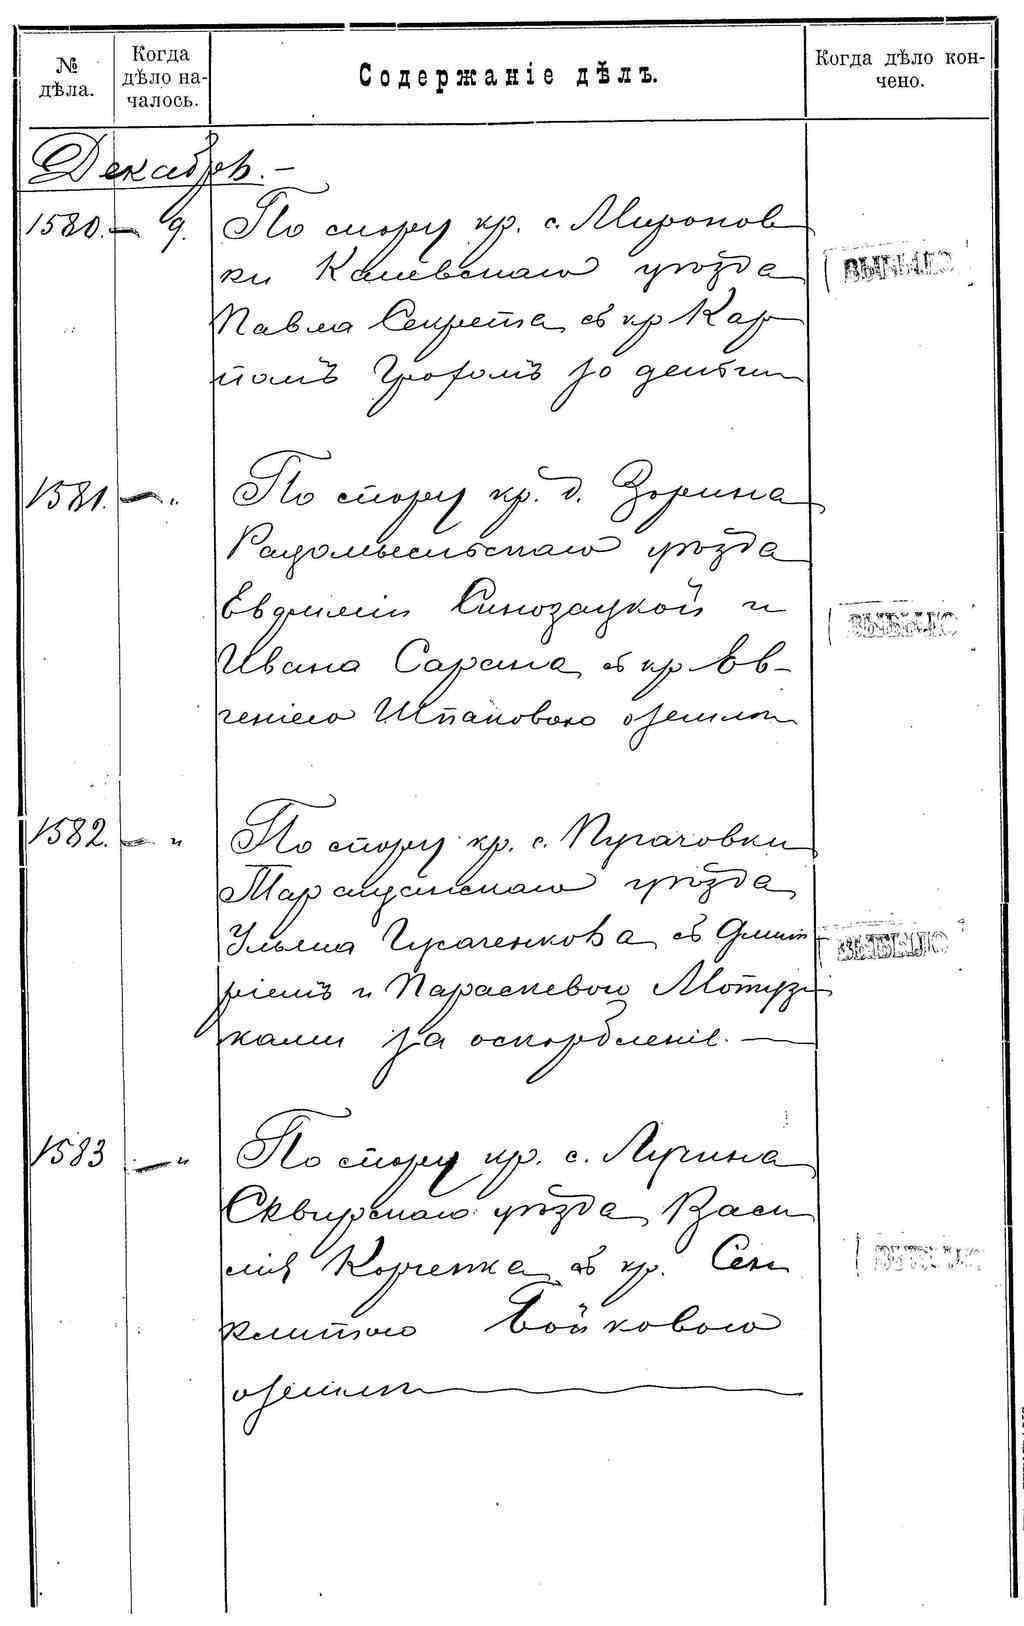 № дѣла.
Когда дѣло на-чалось.
Содержаніе дѣлъ.
Когда дѣло кон-чено.
Декабрь.-
1580. — 9. По спору кр. с. Миронов
ки Каневскаго уѣзда
Павла Секрета съ кр Кар
помъ Грофомъ за деньги
ВЫБЫЛО
1581. — " По спору кр. д. Зорина
Радомысльскаго уѣзда
Евфиміи Синозацкой и
Ивана Сарана съ кр Ев-
геніею Шпаковою о земли
ВЫБЫЛО
1582. — " По спору кр. с. Пугачовки
Таращанскаго уѣзда
Ульяна Гусаченкова съ Дмит
ріемъ и Параскевою Мотуз
ками за оскорбленіе. —
ВЫБЫЛО
1583 — " По спору кр. с. Лучина
Сквирскаго уѣзда Васи
лія Корченка съ кр.
Бойковою
о земли
ВЫБЫЛО